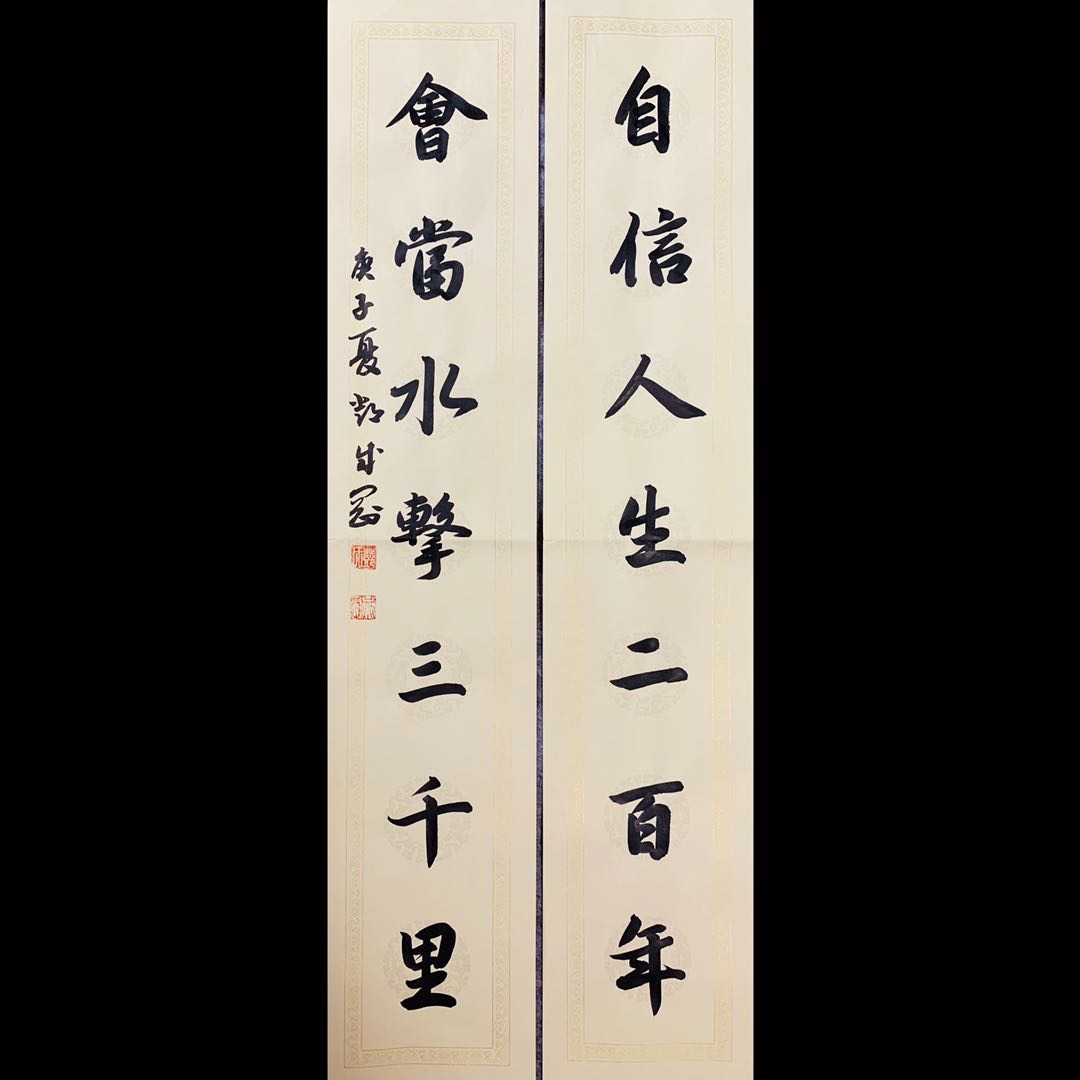 自信人生二百年
會當水擊三千里
庚子夏鄧成剛